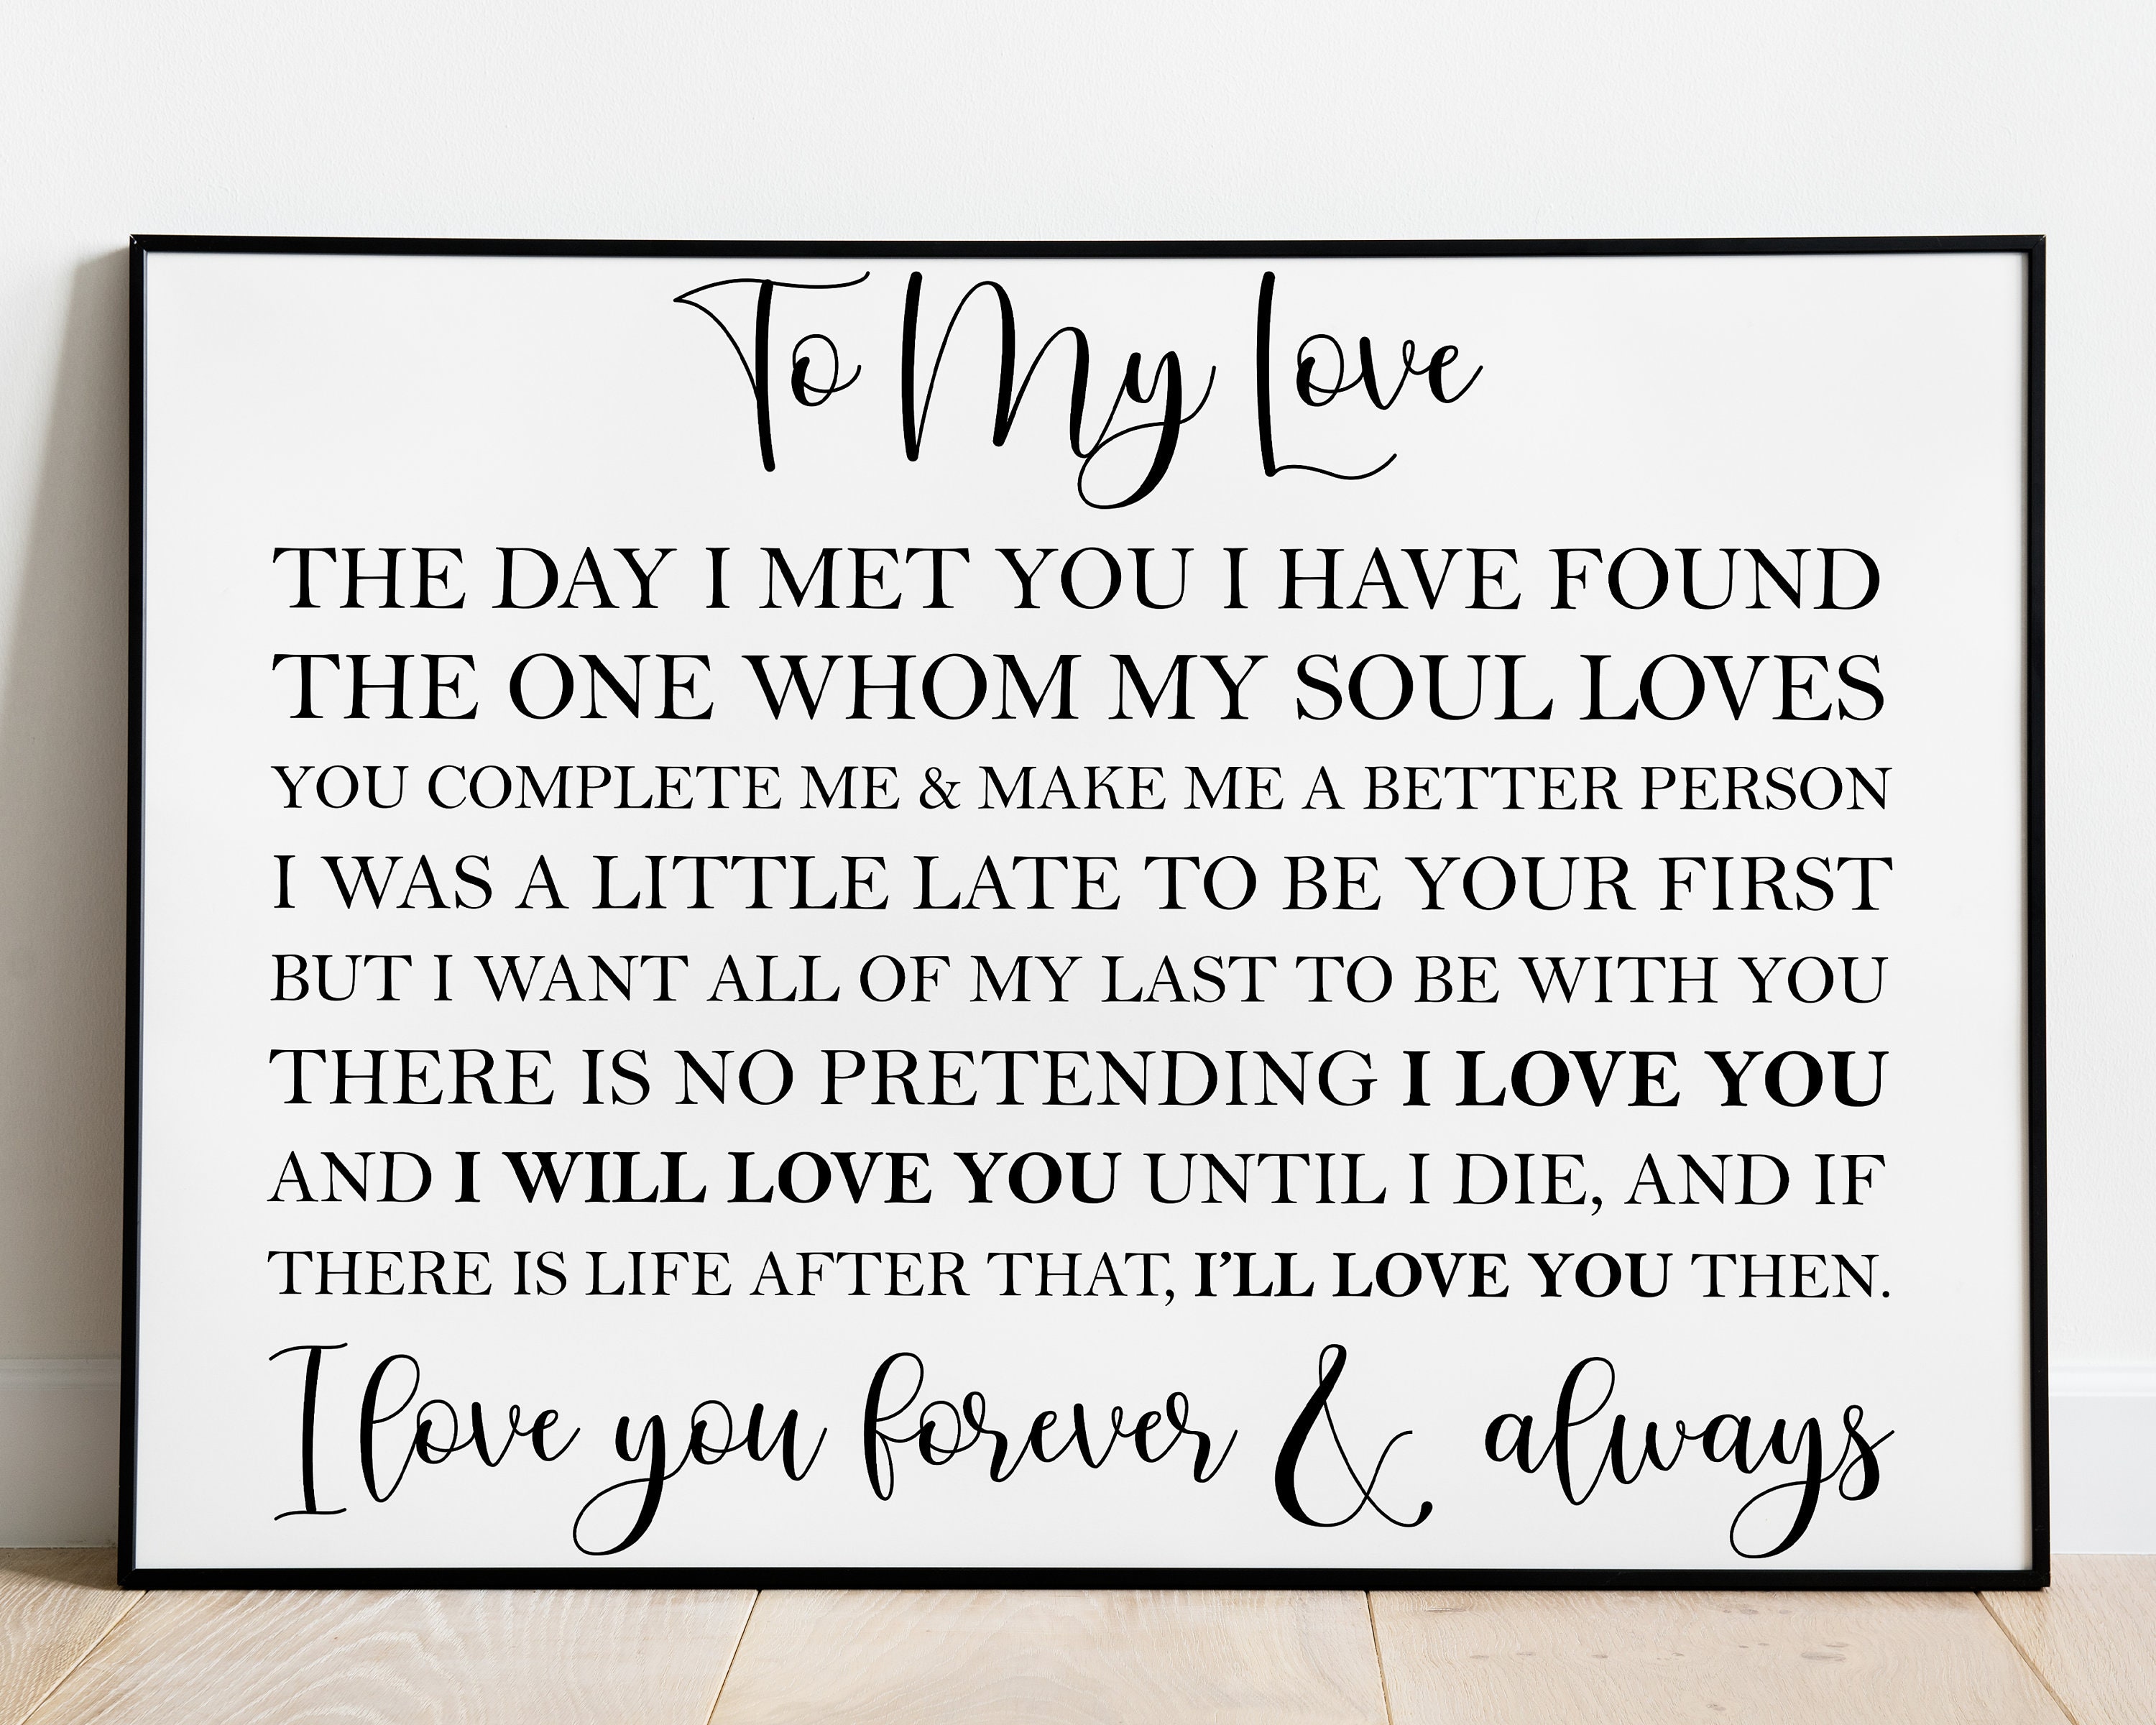 To My Love
THE DAY I MET YOU I HAVE FOUND
THE ONE WHOM MY SOUL LOVES
YOU COMPLETE ME & MAKE ME A BETTER PERSON
I WAS A LITTLE LATE TO BE YOUR FIRST
BUT I WANT ALL OF MY LAST TO BE WITH YOU
THERE IS NO PRETENDING I LOVE YOU
AND I WILL LOVE YOU UNTIL I DIE, AND IF
THERE IS LIFE AFTER THAT, I’LL LOVE YOU THEN.
I love you forever & always